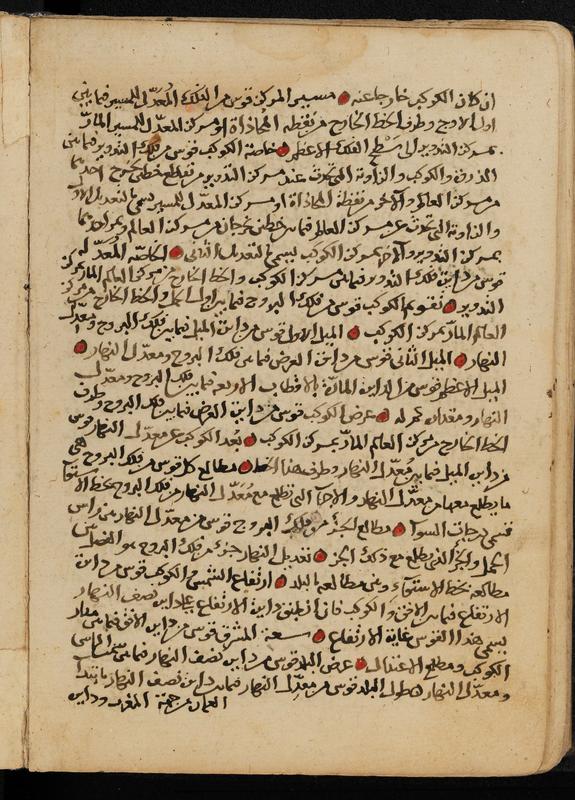 ان كان الكوكب خارجا عنه مسير المركز قوس من الفلك المعدل للمسير فيما بين
اول الاوج وطرف الخط الخارج من نقطه المحاذاة او مركز المعدل للمسير المار
بمركز التدوير الى سطح الفلك الاعظم خاصة الكوكب قوس من فلك التدوير فيما بين
الذروة والكوكب والزاوية التى تحدث عند مركز التدوير من تقاطع خطين يخرج احدهما
من مركز العالم والاخر من نقطة المحاذاة او مركز المعدل للمسير يسمى بالتعديل الاول
والزاوية التى تحدث عن مركز العالم فيما بين خطين يخرجان من مركز العالم ويمر احدهما
بمركز التدوير والاخر بمركز الكوكب يسمى بالتعديل الثانى الخاصة المعدلة
قوس من دايرة فلك التدوير فيما بين مركز الكوكب والخط الخارج من مركز العالم المار بمركز
التدوير تقويم الكوكب قوس من فلك البروج فيما بين اول الحمل والخط الخارج من مركز
العالم المار بمركز الكوكب الميل الاول قوس من دايرة الميل فيما بين فلك البروج ومعدل
النهار الميل الثانى قوس من دايرة العرض فيما بين فلك البروج ومعدل النهار
الميل الاعظم قوس من الدايرة المارة بالاقطاب الاربعه فيما بين فلك البروج ومعدل
النهار ومقداره عرض الكوكب قوس من دايرة العرض فيما بين فلك البروج وطرف
الخط الخارج من مركز العالم المار بمركز الكوكب بعد الكوكب عن معدل النهار قوس
من دايرة الميل فيما بين معدل النهار وطرف هذا الخط مطالع كل قوس من فلك البروج هى
ما يطلع معها من معدل النهار والاجزآ التى تطلع مع معدل النهار من فلك البروج بخط الاستوآ
فسمى درجات السوآ مطالع الجزء من فلك البروج قوس من معدل النهار بين راس
الحمل والجزء الذى يطلع مع ذلك الجزء تعديل النهار جزء من فلك البروج هو الفضل بين
مطالعه بخط الاستوآء وبين مطالعه بالبلد ارتفاع الشمس والكوكب قوس من دايرة
الارتفاع فيما بين الافق والكوكب فان انطبق دايرة الارتفاع على دايرة نصف النهار
يسمى هذا القوس غاية الارتفاع سعة المشرق قوس من دايرة الافق فيما بين مدار
الكوكب ومطلع الاعتدال عرض البلد قوس من دايرة نصف النهار فيما بين سمت الراس
ومعدل النهار طول البلد قوس من معدل النهار فيما بين دايرة نصف النهار بابتدآ
العمارة من جهة المغرب ودايرة